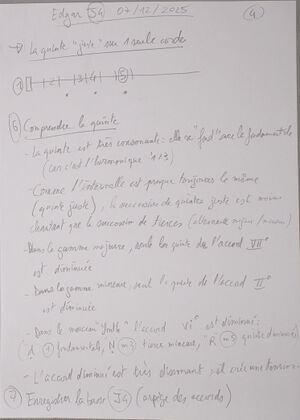 Edgar S4 07/12/2025
(4)
→ La quinte "juste" sur 1 seule corde
① | 2 | | 3 | 4 | | ⑤ |
⑥ Comprendre la quinte
- La quinte est très consonante : elle se "fond" avec le fondamentale
(car c'est l'harmonique n°3)
- Comme l'intervalle est presque toujours le même
(quinte juste), la succession de quintes juste est moins
chantant que la succession de tierces (alternance majeur/mineur)
- Dans la gamme majeure, seule la quinte de l'accord VII°
est diminuée
- Dans la gamme mineure, seul la quinte de l'accord II°
est diminuée
- Dans le morceau l'accord vi° est diminué :
(① fondamentale, m3 tierce mineure, m5 quinte diminuée)
- L'accord diminué est très dissonant et crée une tension
⑦ Enregistrer la basse J4 (arpège des accords)